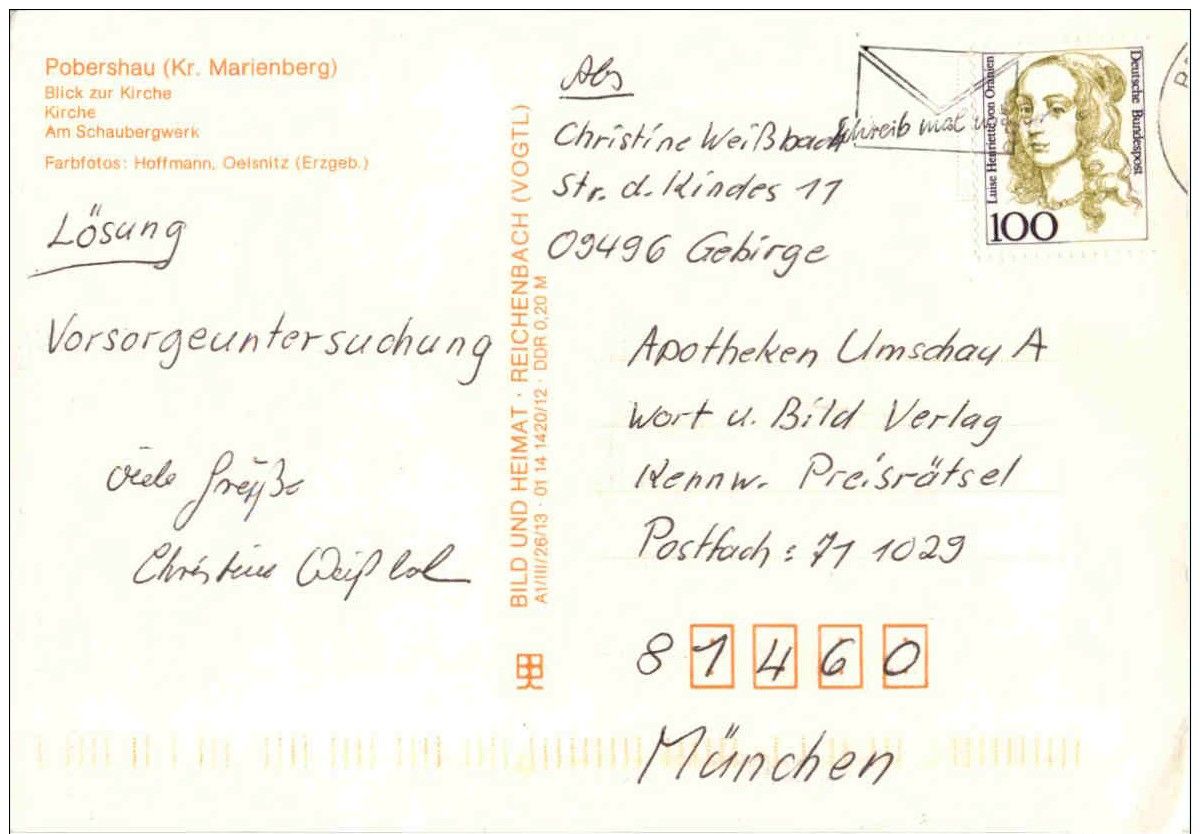 Pobershau (Kr. Marienberg)
Blick zur Kirche
Kirche
Am Schaubergwerk
Farbfotos: Hoffmann, Oelsnitz (Erzgeb.)
Lösung
Vorsorgeuntersuchung
viele Grüße
Christine Weißbach
BILD UND HEIMAT · REICHENBACH (VOGTL)
A1/III/26/13 · 01 14 1420/12 · DDR 0,20 M
Abs
Christine Weißbach
Str. d. Kindes 11
09496 Gebirge
Schreib mal
Luise Henriette von Oranien
Deutsche Bundespost
100
Apotheken Umschau A
Wort u. Bild Verlag
Kennw. Preisrätsel
Postfach: 71 1029
81460
München